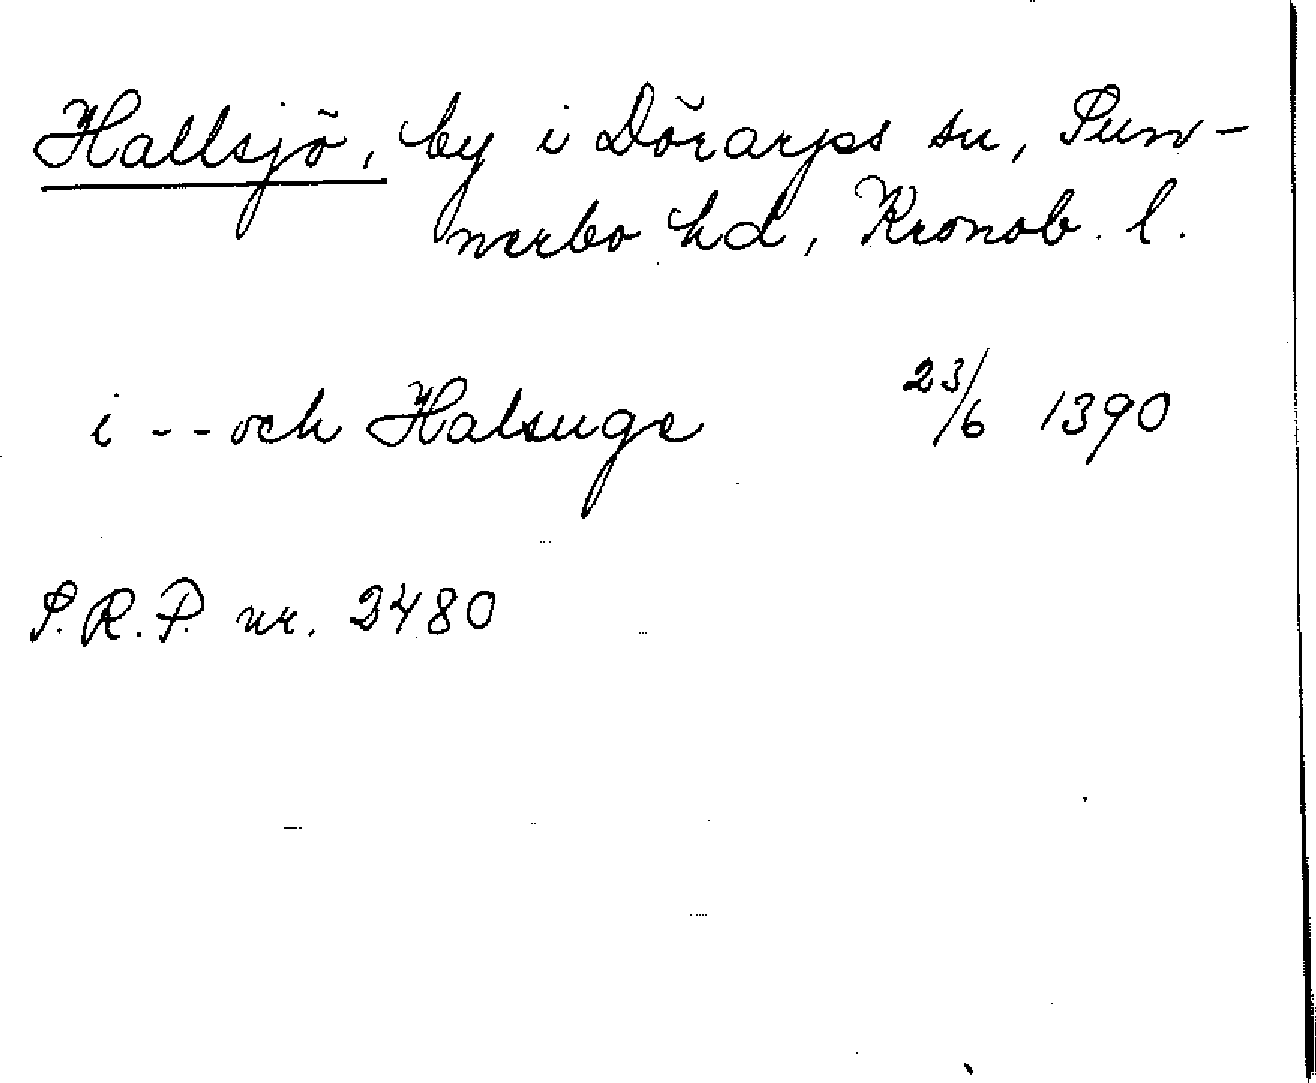 Hallsjö, by i Dörarps sn, Sun-
nerbo hd, Kronob. l.
i -- och Halsuge 23/6 1390
S.R.P. nr. 2480